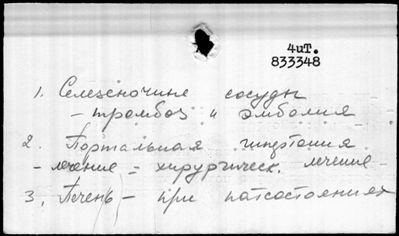 4иТ.
833348
1. Селезеночные сосуды
- тромбоз и эмболия
2. Портальная гипертония
- лечение - хирургическ. лечение
3. Печень - при патсостояниях